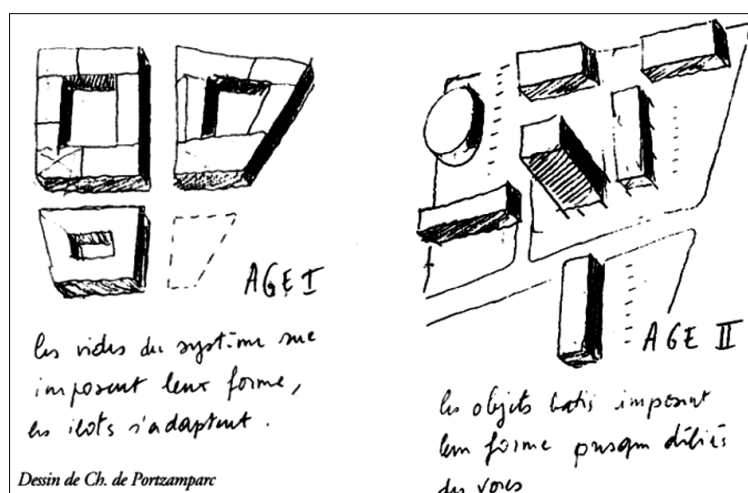 AGE I
les vides du système rue
imposent leur forme,
les ilots s'adaptent.
Dessin de Ch. de Portzamparc
AGE II
les objets batis imposent
leur forme presque déliés
des voies